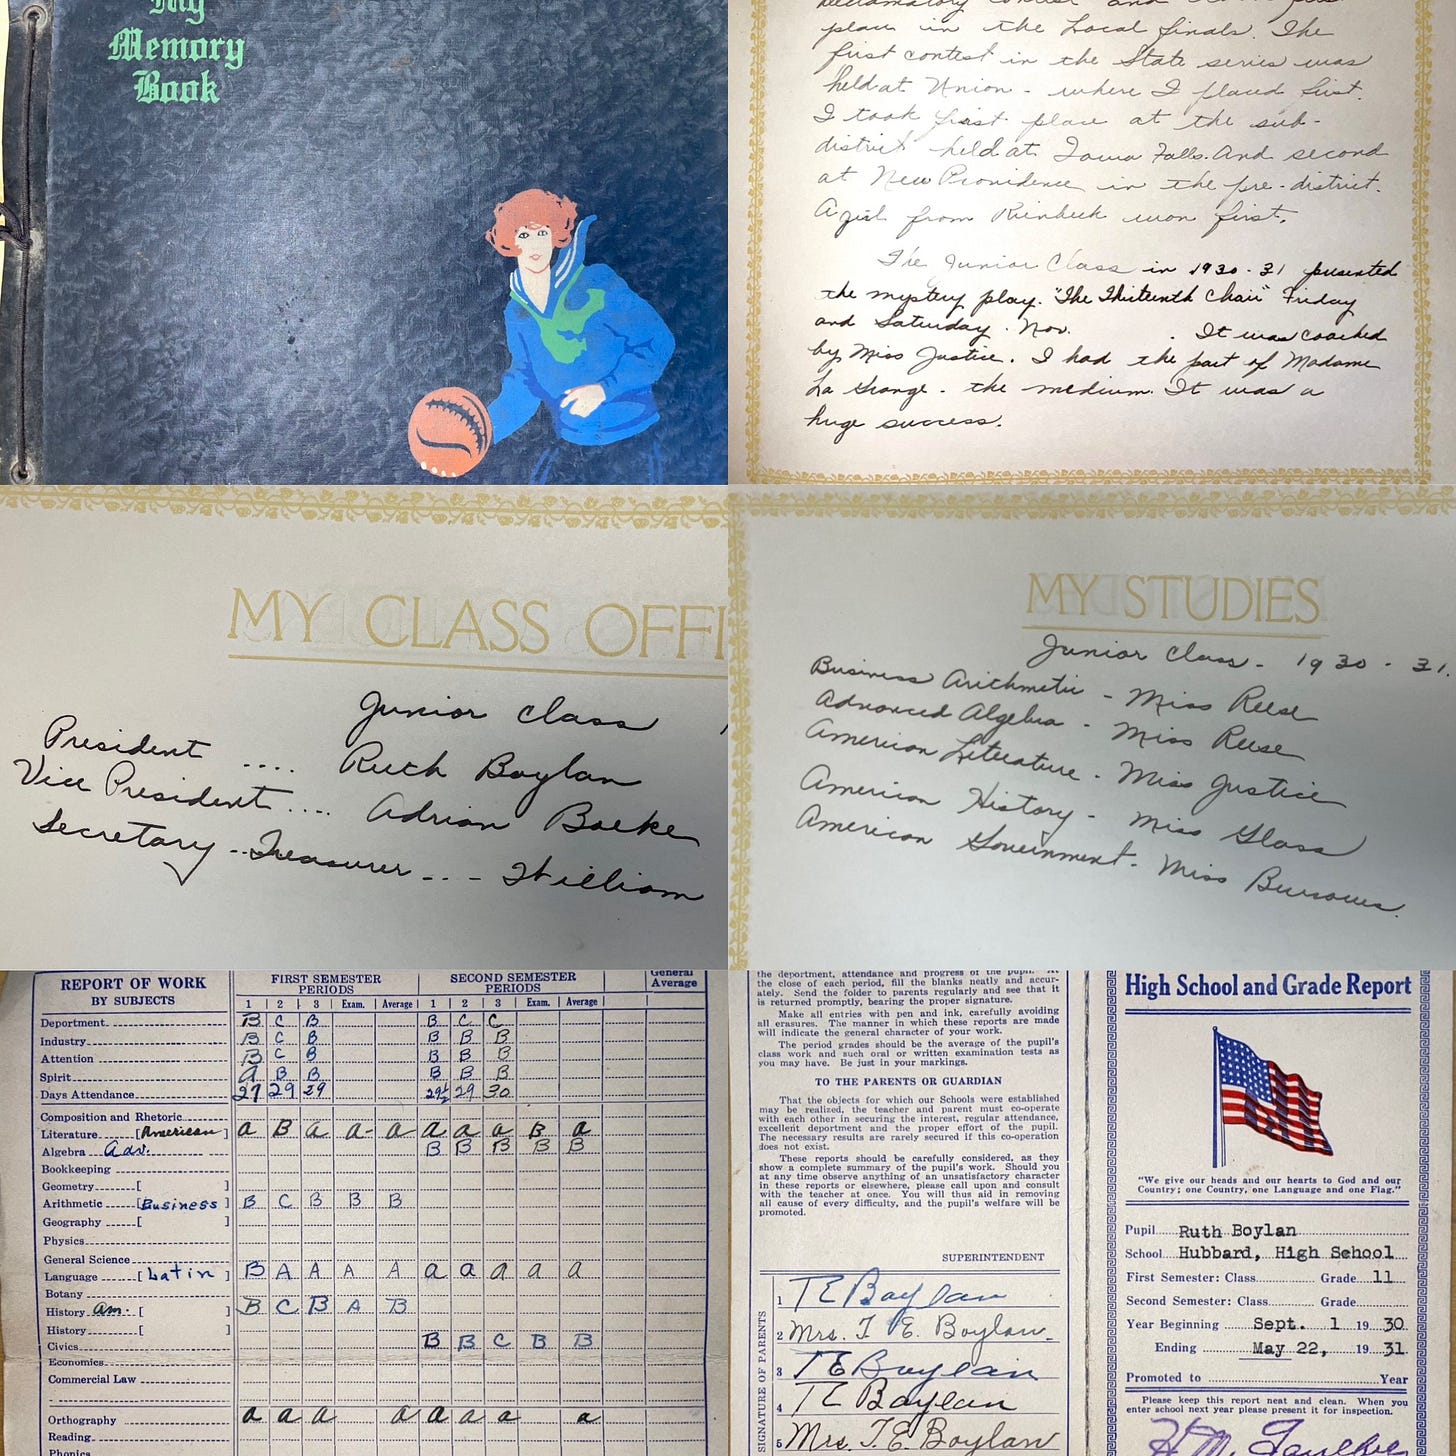 My
Memory
Book
place in the Local finals. The
first contest in the State series was
held at Union - where I placed first.
I took first place at the sub-
district held at Iowa Falls. And second
at New Providence in the pre-district.
A girl from Reinbeck won first.
The Junior Class in 1930-31 presented
the mystery play. "The Thirteenth Chair" Friday
and Saturday. Nov. . It was coached
by Miss Justice. I had the part of Madame
La Grange - the medium. It was a
huge success.
MY CLASS OFFI
Junior Class
President .... Ruth Boylan
Vice President ... Adrian Boeke
Secretary - Treasurer ... William
MY STUDIES
Junior Class - 1930-31.
Business Arithmetic - Miss Reese
Advanced Algebra - Miss Reese
American Literature - Miss Justice
American History - Miss Glass
American Government - Miss Burrows.
REPORT OF WORK
BY SUBJECTS
FIRST SEMESTER
PERIODS
SECOND SEMESTER
PERIODS
General
Average
1 2 3 Exam. Average 1 2 3 Exam. Average
Department B C B B C C
Industry B C B B B B
Attention B C B B B B
Spirit A B B B B B
Days Attendance 27 29 29 29½ 29 30
Composition and Rhetoric
Literature [American] a B a a- a a a a B a
Algebra Adv. B B B B B
Bookkeeping
Geometry [ ]
Arithmetic [Business] B C B B B
Geography [ ]
Physics
General Science
Language [Latin] B A A A A a a a a a
Botany
History Am. [ ] B C B A B
History [ ]
Civics B B C B B
Economics
Commercial Law
Orthography a a a a a a a a
Reading
Phonics
the department, attendance and progress of the pupil. At
the close of each period, fill the blanks neatly and accur-
ately. Send the folder to parents regularly and see that it
is returned promptly, bearing the proper signature.
Make all entries with pen and ink, carefully avoiding
all erasures. The manner in which these reports are made
will indicate the general character of your work.
The period grades should be the average of the pupil's
class work and such oral or written examination tests as
you may have. Be just in your markings.
TO THE PARENTS OR GUARDIAN
That the objects for which our Schools were established
may be realized, the teacher and parent must co-operate
with each other in securing the interest, regular attendance,
excellent department and the proper effort of the pupil.
The necessary results are rarely secured if this co-operation
does not exist.
These reports should be carefully considered, as they
show a complete summary of the pupil's work. Should you
at any time observe anything of an unsatisfactory character
in these reports or elsewhere, please call upon and consult
with the teacher at once. You will thus aid in removing
all cause of every difficulty, and the pupil's welfare will be
promoted.
SUPERINTENDENT
SIGNATURE OF PARENTS
1 T E Boylan
2 Mrs. T. E. Boylan.
3 T E Boylan
4 T E Boylan
5 Mrs. T. E. Boylan
High School and Grade Report
"We give our heads and our hearts to God and our
Country; one Country, one Language and one Flag."
Pupil Ruth Boylan
School Hubbard, High School
First Semester: Class Grade 11
Second Semester: Class Grade
Year Beginning Sept. 1 19 30
Ending May 22, 19 31
Promoted to Year
Please keep this report neat and clean. When you
enter school next year please present it for inspection.
H. M.